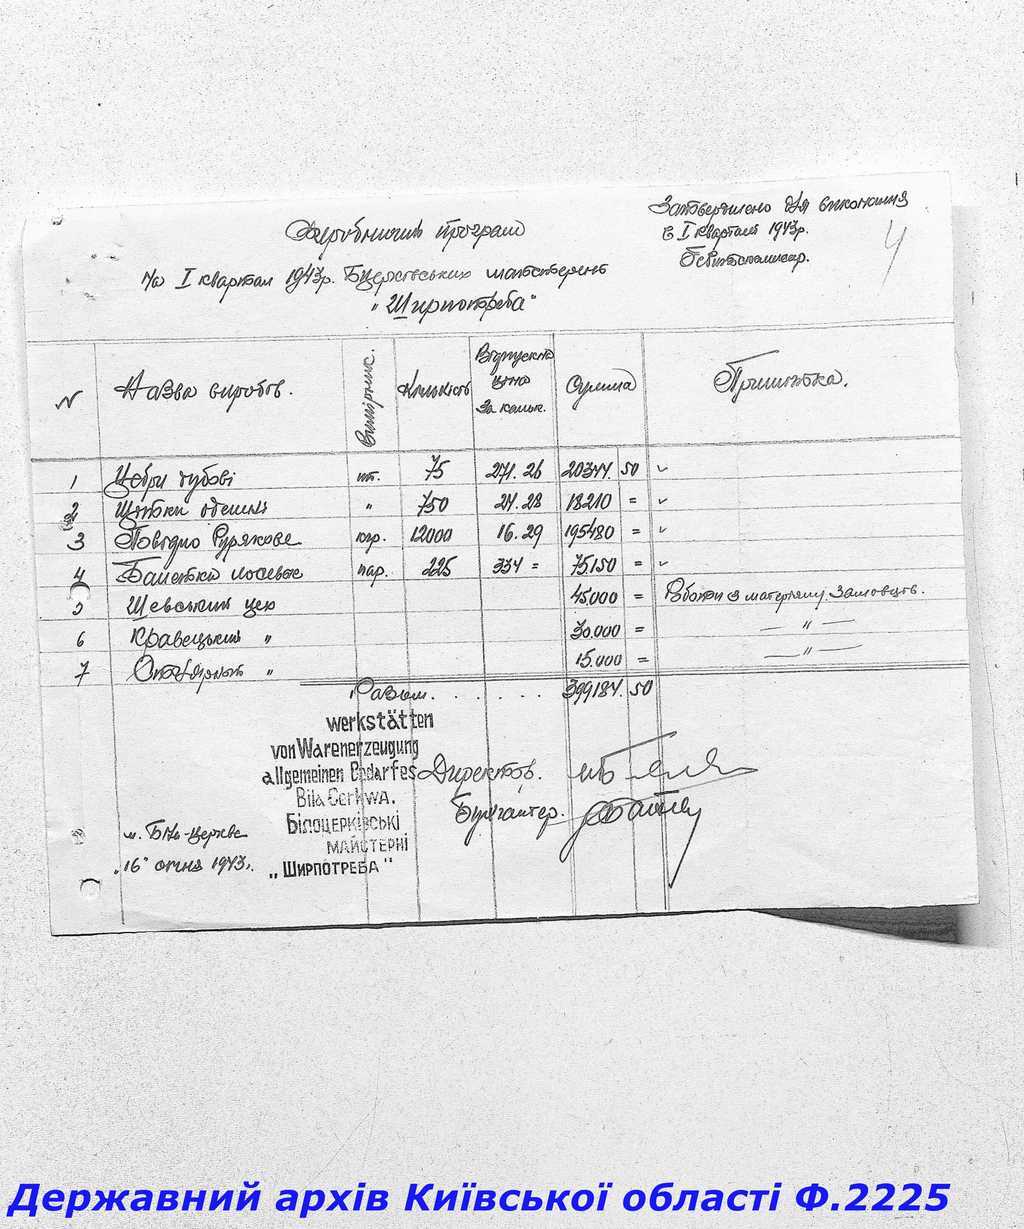 Затверджено для виконання
в I кварталі 1943р.
4
програм
на I квартал 1943р. Бцерківських майстерень
"Ширпотреба"
N
Назва виробів.
Кількість
Відпускна
ціна
за кальк.
Сумма
Примітка.
1 Цебри дубові шт. 75 271.26 20344.50 ✓
2 Щітки " 750 24.28 18210 = ✓
3 Повидло Бурякове кгр. 12000 16.29 195480 = ✓
4 пар. 225 334 = 75.150 = ✓
5 Шевський цех 45.000 = з матеріялу Замовців.
6 Кравецький " 30.000 = — " —
7 " 15.000 = — " —
Разом. . . . . . . 399184.50
werkstätten
von Warenerzeugung
allgemeinen Bedarfes
Bila Cerkwa.
Білоцерківські
майстерні
„Ширпотреба"
Директор.
Бухгалтер.
м. Біла-Церква
"16" січня 1943р.
Державний архів Київської області Ф.2225